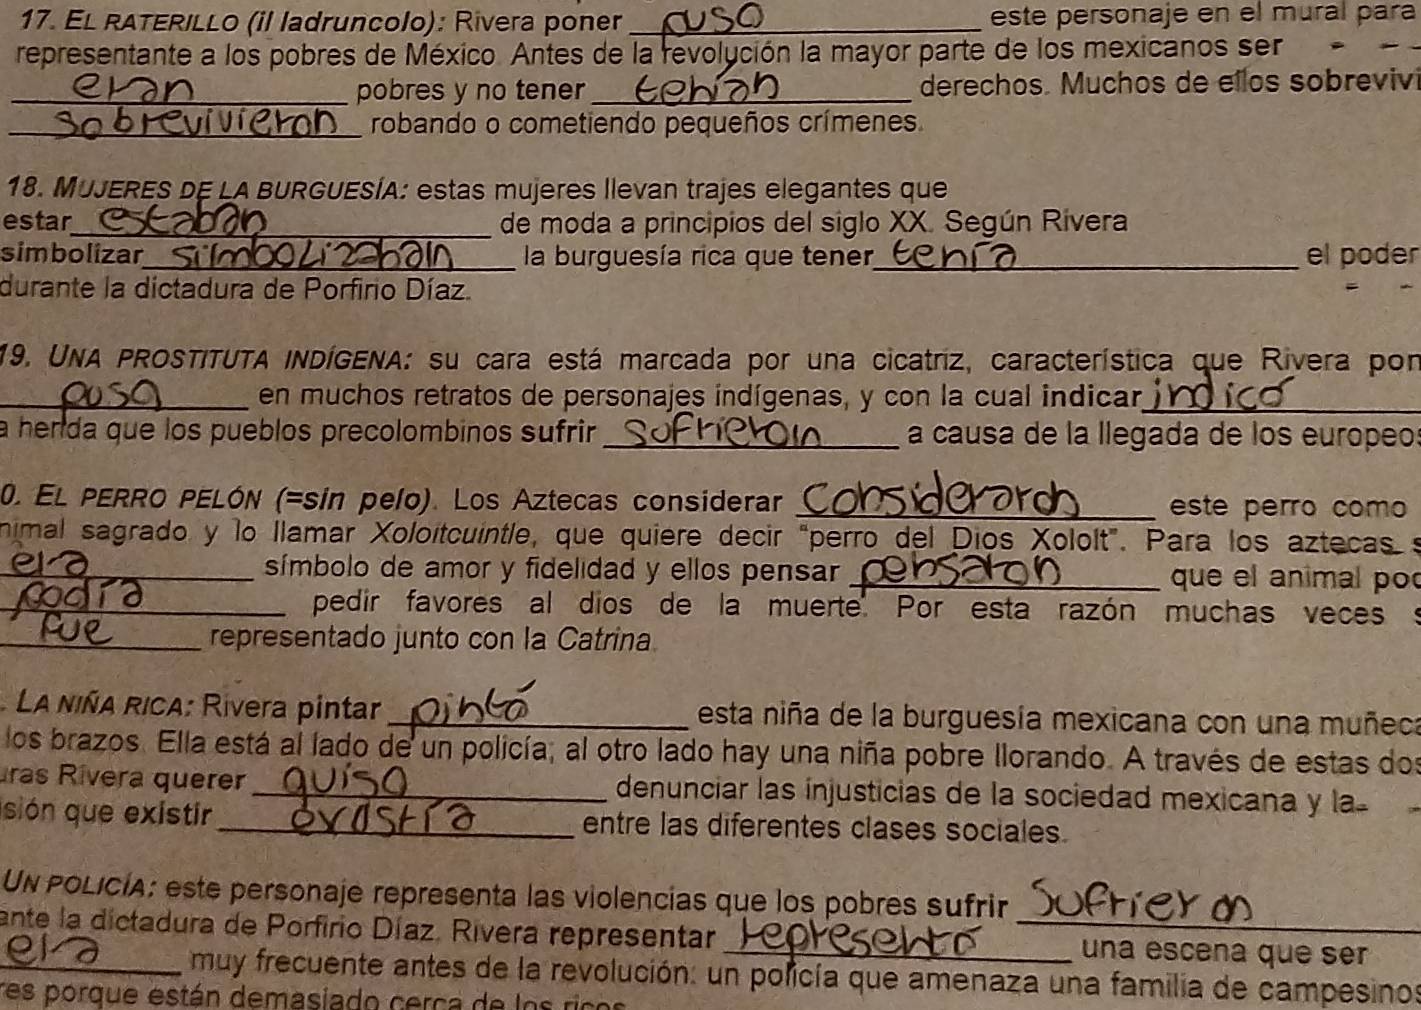 17. EL RATERILLO (il ladruncolo): Rivera poner puso este personaje en el mural para
representante a los pobres de México. Antes de la revolución la mayor parte de los mexicanos ser
eran pobres y no tener tenían derechos. Muchos de ellos sobrevivi
sobrevivieron robando o cometiendo pequeños crímenes.
18. MUJERES DE LA BURGUESÍA: estas mujeres llevan trajes elegantes que
estar estaban de moda a principios del siglo XX. Según Rivera
simbolizar simbolizaban la burguesía rica que tener tenía el poder
durante la dictadura de Porfirio Díaz.
19. UNA PROSTITUTA INDÍGENA: su cara está marcada por una cicatriz, característica que Rivera pon
puso en muchos retratos de personajes indígenas, y con la cual indicar indicó
a herida que los pueblos precolombinos sufrir sufrieron a causa de la llegada de los europeos
0. EL PERRO PELÓN (=sin pelo). Los Aztecas considerar consideraron este perro como
nimal sagrado y lo llamar Xoloitcuintle, que quiere decir "perro del Dios Xololt". Para los aztecas s
era símbolo de amor y fidelidad y ellos pensar pensaron que el animal pod
podía pedir favores al dios de la muerte. Por esta razón muchas veces s
fue representado junto con la Catrina.
. LA NIÑA RICA: Rivera pintar pintó esta niña de la burguesía mexicana con una muñeca
los brazos. Ella está al lado de un policía; al otro lado hay una niña pobre llorando. A través de estas dos
uras Rivera querer quiso denunciar las injusticias de la sociedad mexicana y la
isión que existir existía entre las diferentes clases sociales.
UN POLICÍA: este personaje representa las violencias que los pobres sufrir sufrieron
ante la dictadura de Porfirio Díaz. Rivera representar representó una escena que ser
era muy frecuente antes de la revolución: un policía que amenaza una familia de campesinos
res porque están demasiado cerca de los ricos